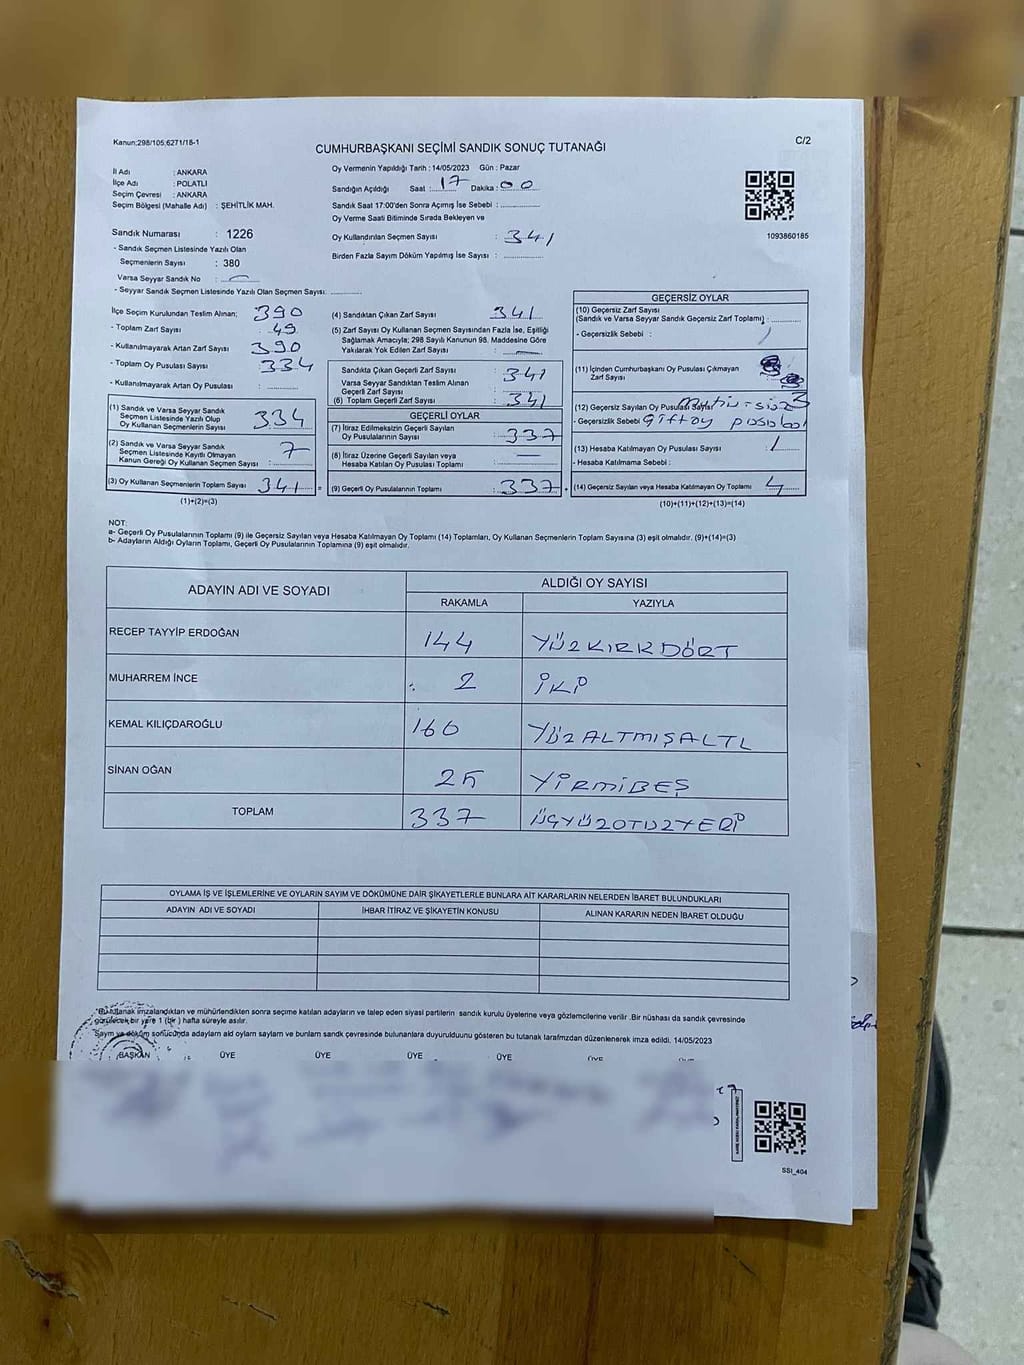 Kanun:298/105;6271/18-1
C/2
CUMHURBAŞKANI SEÇİMİ SANDIK SONUÇ TUTANAĞI
İl Adı : ANKARA
İlçe Adı : POLATLI
Seçim Çevresi : ANKARA
Seçim Bölgesi (Mahalle Adı) : ŞEHİTLİK MAH.
Oy Vermenin Yapıldığı Tarih : 14/05/2023 Gün : Pazar
Sandığın Açıldığı Saat : 17 Dakika : 00
Sandık Saat 17:00'den Sonra Açılmış İse Sebebi :
Oy Verme Saati Bitiminde Sırada Bekleyen ve
Oy Kullandırılan Seçmen Sayısı : 341
Birden Fazla Sayım Döküm Yapılmış İse Sayısı :
1093860185
Sandık Numarası : 1226
- Sandık Seçmen Listesinde Yazılı Olan
Seçmenlerin Sayısı : 380
Varsa Seyyar Sandık No :
- Seyyar Sandık Seçmen Listesinde Yazılı Olan Seçmen Sayısı:
İlçe Seçim Kurulundan Teslim Alınan; 390
- Toplam Zarf Sayısı 49
- Kullanılmayarak Artan Zarf Sayısı 390
- Toplam Oy Pusulası Sayısı 334
- Kullanılmayarak Artan Oy Pusulası :
(1) Sandık ve Varsa Seyyar Sandık
Seçmen Listesinde Yazılı Olup
Oy Kullanan Seçmenlerin Sayısı 334
(2) Sandık ve Varsa Seyyar Sandık
Seçmen Listesinde Kayıtlı Olmayan
Kanun Gereği Oy Kullanan Seçmen Sayısı : 7
(3) Oy Kullanan Seçmenlerin Toplam Sayısı 341
(1)+(2)=(3)
(4) Sandıktan Çıkan Zarf Sayısı 341
(5) Zarf Sayısı Oy Kullanan Seçmen Sayısından Fazla İse, Eşitliği
Sağlamak Amacıyla; 298 Sayılı Kanunun 98. Maddesine Göre
Yakılarak Yok Edilen Zarf Sayısı :
Sandıkta Çıkan Geçerli Zarf Sayısı : 341
Varsa Seyyar Sandıktan Teslim Alınan
Geçerli Zarf Sayısı :
(6) Toplam Geçerli Zarf Sayısı : 341
GEÇERLİ OYLAR
(7) İtiraz Edilmeksizin Geçerli Sayılan
Oy Pusulalarının Sayısı : 337
(8) İtiraz Üzerine Geçerli Sayılan veya
Hesaba Katılan Oy Pusulası Toplamı : —
(9) Geçerli Oy Pusulalarının Toplamı : 337
GEÇERSİZ OYLAR
(10) Geçersiz Zarf Sayısı
(Sandık ve Varsa Seyyar Sandık Geçersiz Zarf Toplamı) :
- Geçersizlik Sebebi :
(11) İçinden Cumhurbaşkanı Oy Pusulası Çıkmayan
Zarf Sayısı
(12) Geçersiz Sayılan Oy Pusulası Sayısı 3
- Geçersizlik Sebebi
(13) Hesaba Katılmayan Oy Pusulası Sayısı : 1
- Hesaba Katılmama Sebebi :
(14) Geçersiz Sayılan veya Hesaba Katılmayan Oy Toplamı 4
(10)+(11)+(12)+(13)=(14)
NOT:
a- Geçerli Oy Pusulalarının Toplamı (9) ile Geçersiz Sayılan veya Hesaba Katılmayan Oy Toplamı (14) Toplamları, Oy Kullanan Seçmenlerin Toplam Sayısına (3) eşit olmalıdır. (9)+(14)=(3)
b- Adayların Aldığı Oyların Toplamı, Geçerli Oy Pusulalarının Toplamına (9) eşit olmalıdır.
ADAYIN ADI VE SOYADI
ALDIĞI OY SAYISI
RAKAMLA YAZIYLA
RECEP TAYYİP ERDOĞAN 144 YÜZKIRKDÖRT
MUHARREM İNCE 2 İKİ
KEMAL KILIÇDAROĞLU 166 YÜZALTMIŞALTI
SİNAN OĞAN 25 YİRMİBEŞ
TOPLAM 337 ÜÇYÜZOTUZYEDİ
OYLAMA İŞ VE İŞLEMLERİNE VE OYLARIN SAYIM VE DÖKÜMÜNE DAİR ŞİKAYETLERLE BUNLARA AİT KARARLARIN NELERDEN İBARET BULUNDUKLARI
ADAYIN ADI VE SOYADI İHBAR İTİRAZ VE ŞİKAYETİN KONUSU ALINAN KARARIN NEDEN İBARET OLDUĞU
Bu tutanak imzalandıktan ve mühürlendikten sonra seçime katılan adayların ve talep eden siyasi partilerin sandık kurulu üyelerine veya gözlemcilerine verilir .Bir nüshası da sandık çevresinde
görülecek bir yere 1 (bir ) hafta süreyle asılır.
Sayım ve döküm sonucunda adayların ald oyların sayların ve bunların sandk çevresinde bulunanlara duyurulduunu gösteren bu tutanak tarafmzdan düzenlenerek imza edildi. 14/05/2023
BAŞKAN ÜYE ÜYE ÜYE ÜYE ÜYE ÜYE
SSI_404